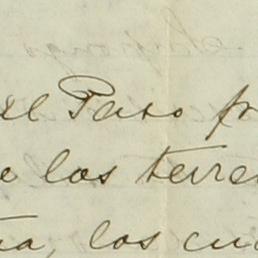 el Paso fr
e los terre
ña, los cu